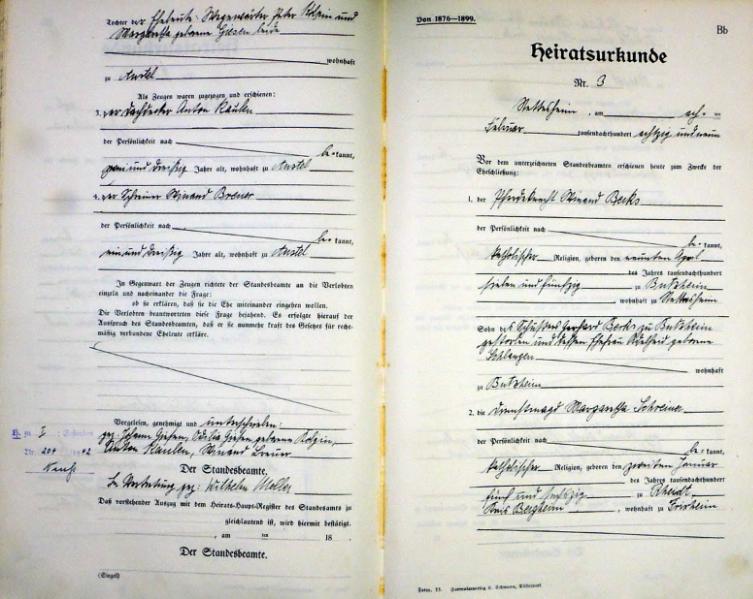 Tochter der Eheleute: Wegewärter Peter Kolpin und
Margaretha geborene Giesen beide
wohnhaft
zu Anstel
Als Zeugen waren zugezogen und erschienen:
3. der Dachdecker Anton Kaulen
der Persönlichkeit nach
be kannt,
und dreißig Jahre alt, wohnhaft zu Anstel
4. der Schreiner Winand Breuer
der Persönlichkeit nach
be kannt,
ein und dreißig Jahre alt, wohnhaft zu Anstel
In Gegenwart der Zeugen richtete der Standesbeamte an die Verlobten
einzeln und nacheinander die Frage:
ob sie erklären, daß sie die Ehe miteinander eingehen wollen.
Die Verlobten beantworteten diese Frage bejahend. Es erfolgte hierauf der
Ausspruch des Standesbeamten, daß er sie nunmehr kraft des Gesetzes für recht-
mäßig verbundene Eheleute erkläre.
Vorgelesen, genehmigt und unterschrieben:
gez: Johann Giesen, Odilia Giesen geborene Kolpin,
Anton Kaulen, Winand Breuer
Der Standesbeamte.
In Vertretung gez: Wilhelm Moller
Daß vorstehender Auszug mit dem Heirats-Haupt-Register des Standesamts zu
gleichlautend ist, wird hiermit bestätigt.
, am ten 18
Der Standesbeamte.
(Siegel)
Von 1876—1899.
Bb
Heiratsurkunde
Nr. 3
Nettesheim, am ach ten
Februar tausendachthundert achtzig und neun
Vor dem unterzeichneten Standesbeamten erschienen heute zum Zwecke der
Eheschließung:
1. der Pferdeknecht Winand Berks
der Persönlichkeit nach
be kannt,
katholischer Religion, geboren den neunten April
des Jahres tausendachthundert
sieben und fünfzig zu Butzheim
, wohnhaft zu Nettesheim
Sohn des Schusters Gerhard Berks zu Butzheim
gestorben und dessen Ehefrau Adelheid geborene
Schlangen
wohnhaft
zu Butzheim
2. die Dienstmagd Margaretha Schreiner
der Persönlichkeit nach
be kannt,
katholischer Religion, geboren den zweiten Januar
des Jahres tausendachthundert
fünf und sechzig zu Rheidt
Kreis Bergheim, wohnhaft zu Frixheim